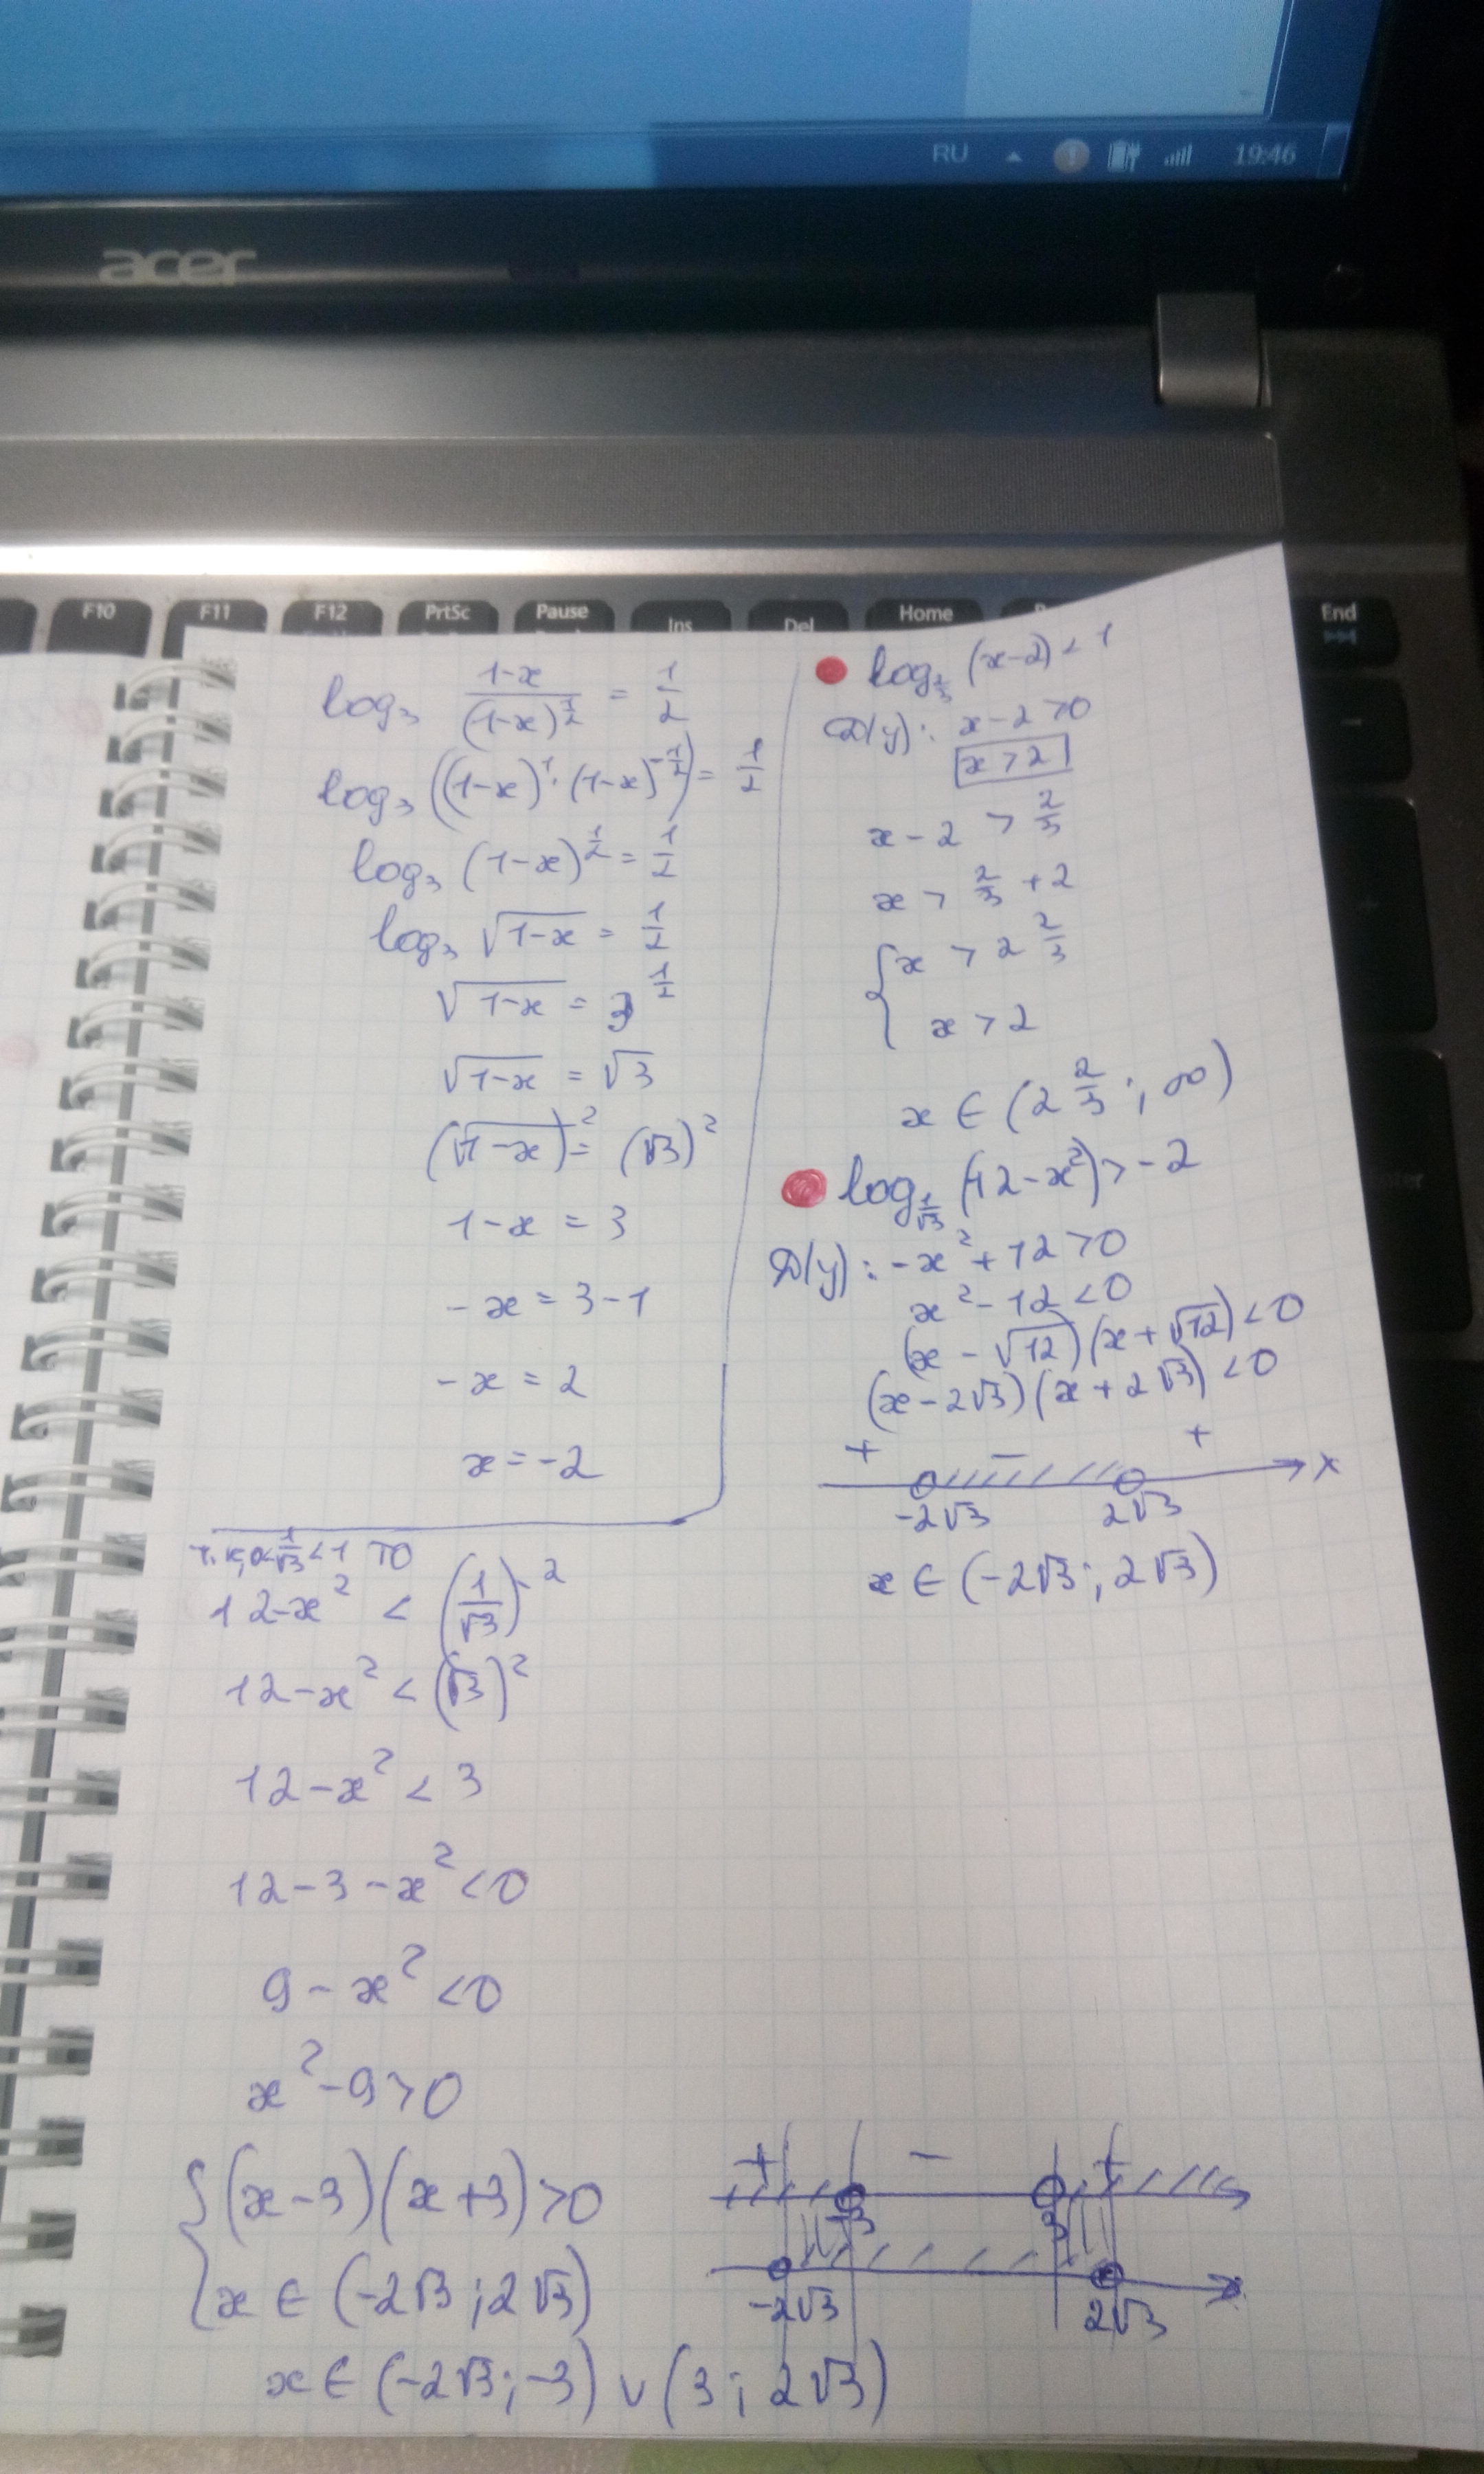 RU 19:46
acer
F10 F11 F12 PrtSc Pause Ins Del Home End
log₃ (1-x)/(1-x)^(1/2) = 1/2
log₃ ((1-x)¹·(1-x)^(-1/2)) = 1/2
log₃ (1-x)^(1/2) = 1/2
log₃ √(1-x) = 1/2
√(1-x) = 3^(1/2)
√(1-x) = √3
(√(1-x))² = (√3)²
1-x = 3
-x = 3-1
-x = 2
x = -2
(x-2) < 1
D(y): x-2 > 0
x > 2
x-2 > 2/3
x > 2/3 + 2
{ x > 2 2/3
x > 2
x ∈ (2 2/3; ∞)
log_(1/√3) (12-x²) > -2
D(y): -x² + 12 > 0
x² - 12 < 0
(x - √12)(x + √12) < 0
(x - 2√3)(x + 2√3) < 0
+ - +
x
-2√3 2√3
x ∈ (-2√3; 2√3)
т.к. 0 < 1/√3 < 1 то
12-x² < (1/√3)^(-2)
12-x² < (√3)²
12-x² < 3
12-3-x² < 0
9-x² < 0
x²-9 > 0
{ (x-3)(x+3) > 0
x ∈ (-2√3; 2√3)
+ - +
-3 3
-2√3 2√3
x ∈ (-2√3; -3) ∪ (3; 2√3)